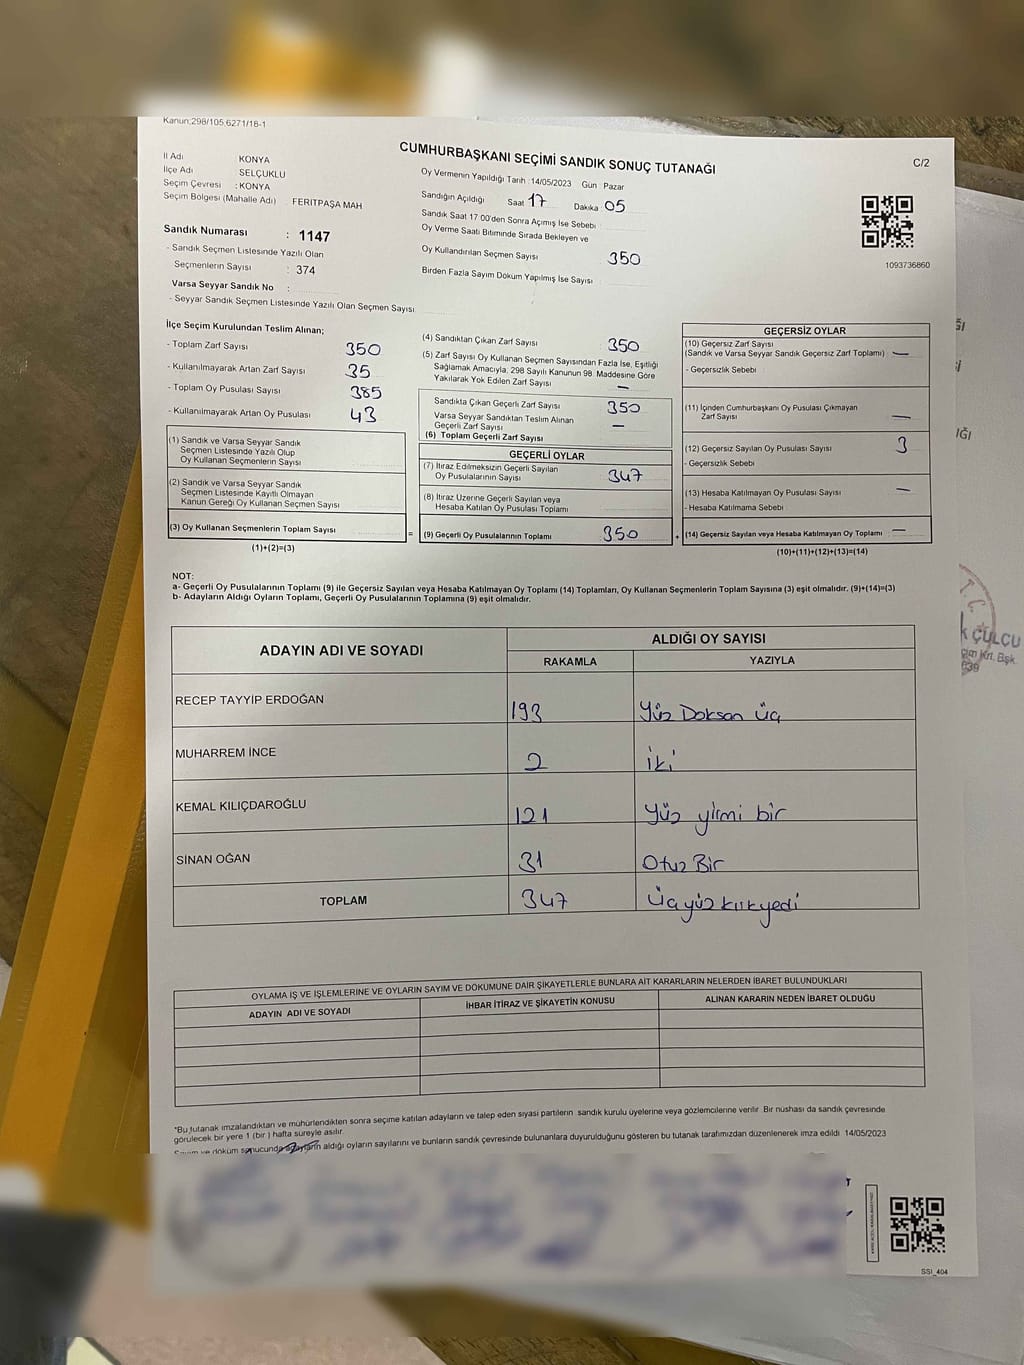 Kanun:298/105,6271/18-1
CUMHURBAŞKANI SEÇİMİ SANDIK SONUÇ TUTANAĞI
C/2
İl Adı KONYA
İlçe Adı SELÇUKLU
Seçim Çevresi : KONYA
Seçim Bölgesi (Mahalle Adı) FERITPAŞA MAH
Oy Vermenin Yapıldığı Tarih :14/05/2023 Gün : Pazar
Sandığın Açıldığı Saat 17 Dakika : 05
Sandık Saat 17 00'den Sonra Açımış İse Sebebi
Sandık Numarası : 1147
- Sandık Seçmen Listesinde Yazılı Olan
Seçmenlerin Sayısı : 374
Varsa Seyyar Sandık No :
- Seyyar Sandık Seçmen Listesinde Yazılı Olan Seçmen Sayısı
Oy Verme Saati Bitiminde Sırada Bekleyen ve
Oy Kullandırılan Seçmen Sayısı 350
Birden Fazla Sayım Döküm Yapılmış İse Sayısı
1093736860
İlçe Seçim Kurulundan Teslim Alınan;
- Toplam Zarf Sayısı 350
- Kullanılmayarak Artan Zarf Sayısı 35
- Toplam Oy Pusulası Sayısı 385
- Kullanılmayarak Artan Oy Pusulası 43
(1) Sandık ve Varsa Seyyar Sandık
Seçmen Listesinde Yazılı Olup
Oy Kullanan Seçmenlerin Sayısı
(2) Sandık ve Varsa Seyyar Sandık
Seçmen Listesinde Kayıtlı Olmayan
Kanun Gereği Oy Kullanan Seçmen Sayısı
(3) Oy Kullanan Seçmenlerin Toplam Sayısı
(1)+(2)=(3)
(4) Sandıktan Çıkan Zarf Sayısı 350
(5) Zarf Sayısı Oy Kullanan Seçmen Sayısından Fazla İse, Eşitliği
Sağlamak Amacıyla, 298 Sayılı Kanunun 98. Maddesine Göre
Yakılarak Yok Edilen Zarf Sayısı —
Sandıkta Çıkan Geçerli Zarf Sayısı 350
Varsa Seyyar Sandıktan Teslim Alınan
Geçerli Zarf Sayısı —
(6) Toplam Geçerli Zarf Sayısı
GEÇERLİ OYLAR
(7) İtiraz Edilmeksizin Geçerli Sayılan
Oy Pusulalarının Sayısı 347
(8) İtiraz Üzerine Geçerli Sayılan veya
Hesaba Katılan Oy Pusulası Toplamı
= (9) Geçerli Oy Pusulalarının Toplamı 350 +
GEÇERSİZ OYLAR
(10) Geçersiz Zarf Sayısı
(Sandık ve Varsa Seyyar Sandık Geçersiz Zarf Toplamı) —
- Geçersizlik Sebebi
(11) İçinden Cumhurbaşkanı Oy Pusulası Çıkmayan
Zarf Sayısı —
(12) Geçersiz Sayılan Oy Pusulası Sayısı 3
- Geçersizlik Sebebi
(13) Hesaba Katılmayan Oy Pusulası Sayısı —
- Hesaba Katılmama Sebebi
(14) Geçersiz Sayılan veya Hesaba Katılmayan Oy Toplamı —
(10)+(11)+(12)+(13)=(14)
NOT:
a- Geçerli Oy Pusulalarının Toplamı (9) ile Geçersiz Sayılan veya Hesaba Katılmayan Oy Toplamı (14) Toplamları, Oy Kullanan Seçmenlerin Toplam Sayısına (3) eşit olmalıdır. (9)+(14)=(3)
b- Adayların Aldığı Oyların Toplamı, Geçerli Oy Pusulalarının Toplamına (9) eşit olmalıdır.
ADAYIN ADI VE SOYADI
ALDIĞI OY SAYISI
RAKAMLA YAZIYLA
RECEP TAYYİP ERDOĞAN 193 Yüz Doksan üç
MUHARREM İNCE 2 İki
KEMAL KILIÇDAROĞLU 121 Yüz yirmi bir
SİNAN OĞAN 31 Otuz Bir
TOPLAM 347 Üçyüzkırkyedi
OYLAMA İŞ VE İŞLEMLERİNE VE OYLARIN SAYIM VE DÖKÜMÜNE DAİR ŞİKAYETLERLE BUNLARA AİT KARARLARIN NELERDEN İBARET BULUNDUKLARI
ADAYIN ADI VE SOYADI
İHBAR İTİRAZ VE ŞİKAYETİN KONUSU
ALINAN KARARIN NEDEN İBARET OLDUĞU
*Bu tutanak imzalandıktan ve mühürlendikten sonra seçime katılan adayların ve talep eden siyasi partilerin sandık kurulu üyelerine veya gözlemcilerine verilir Bir nüshası da sandık çevresinde
görülecek bir yere 1 (bir) hafta süreyle asılır.
Sayım ve döküm sonucunda adayların aldığı oyların sayılarını ve bunların sandık çevresinde bulunanlara duyurulduğunu gösteren bu tutanak tarafımızdan düzenlenerek imza edildi 14/05/2023
SSI_404
ÇULCU